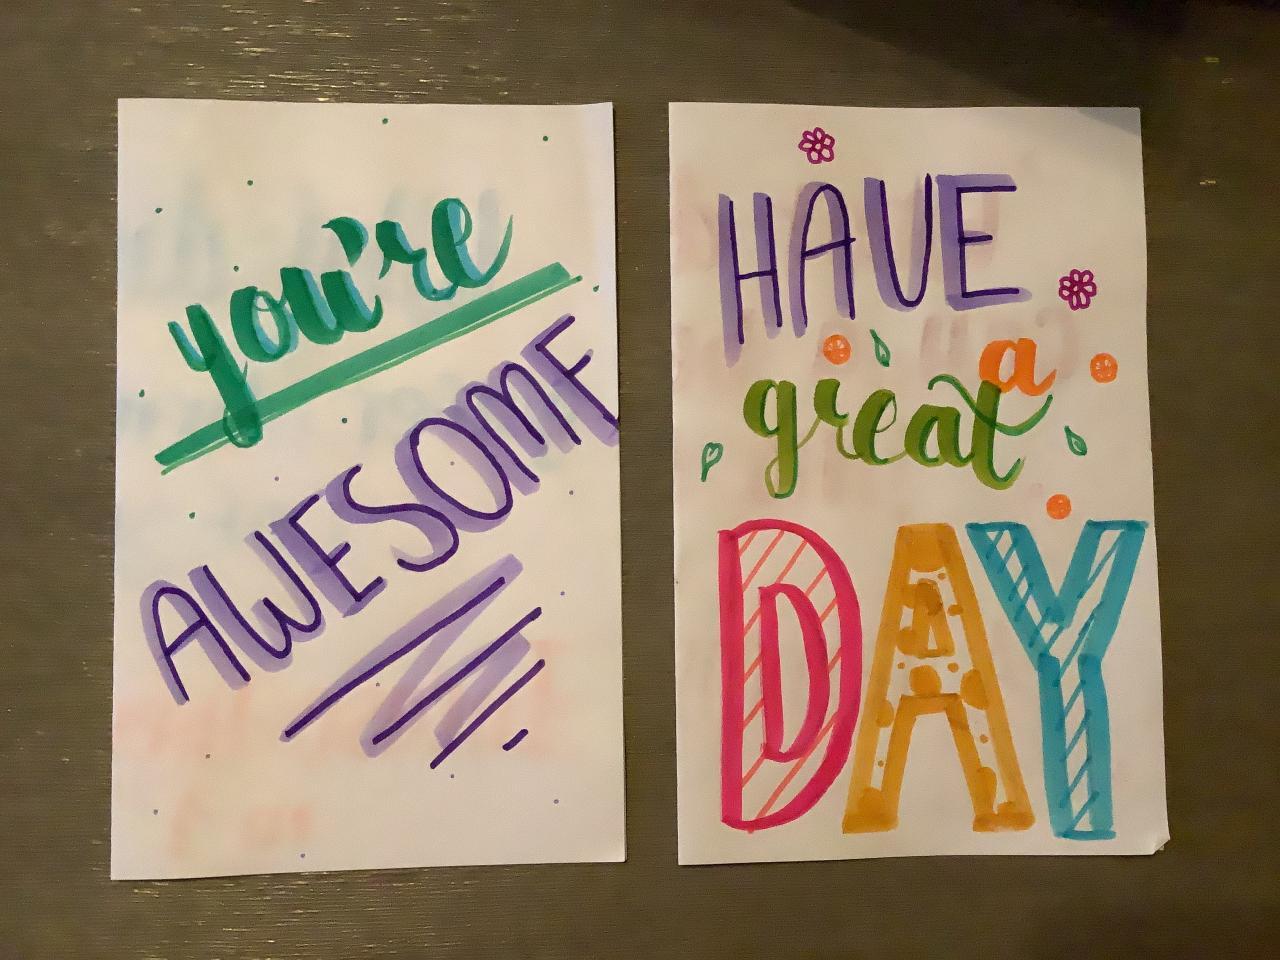 you're
AWESOME
HAVE
a
great
DAY